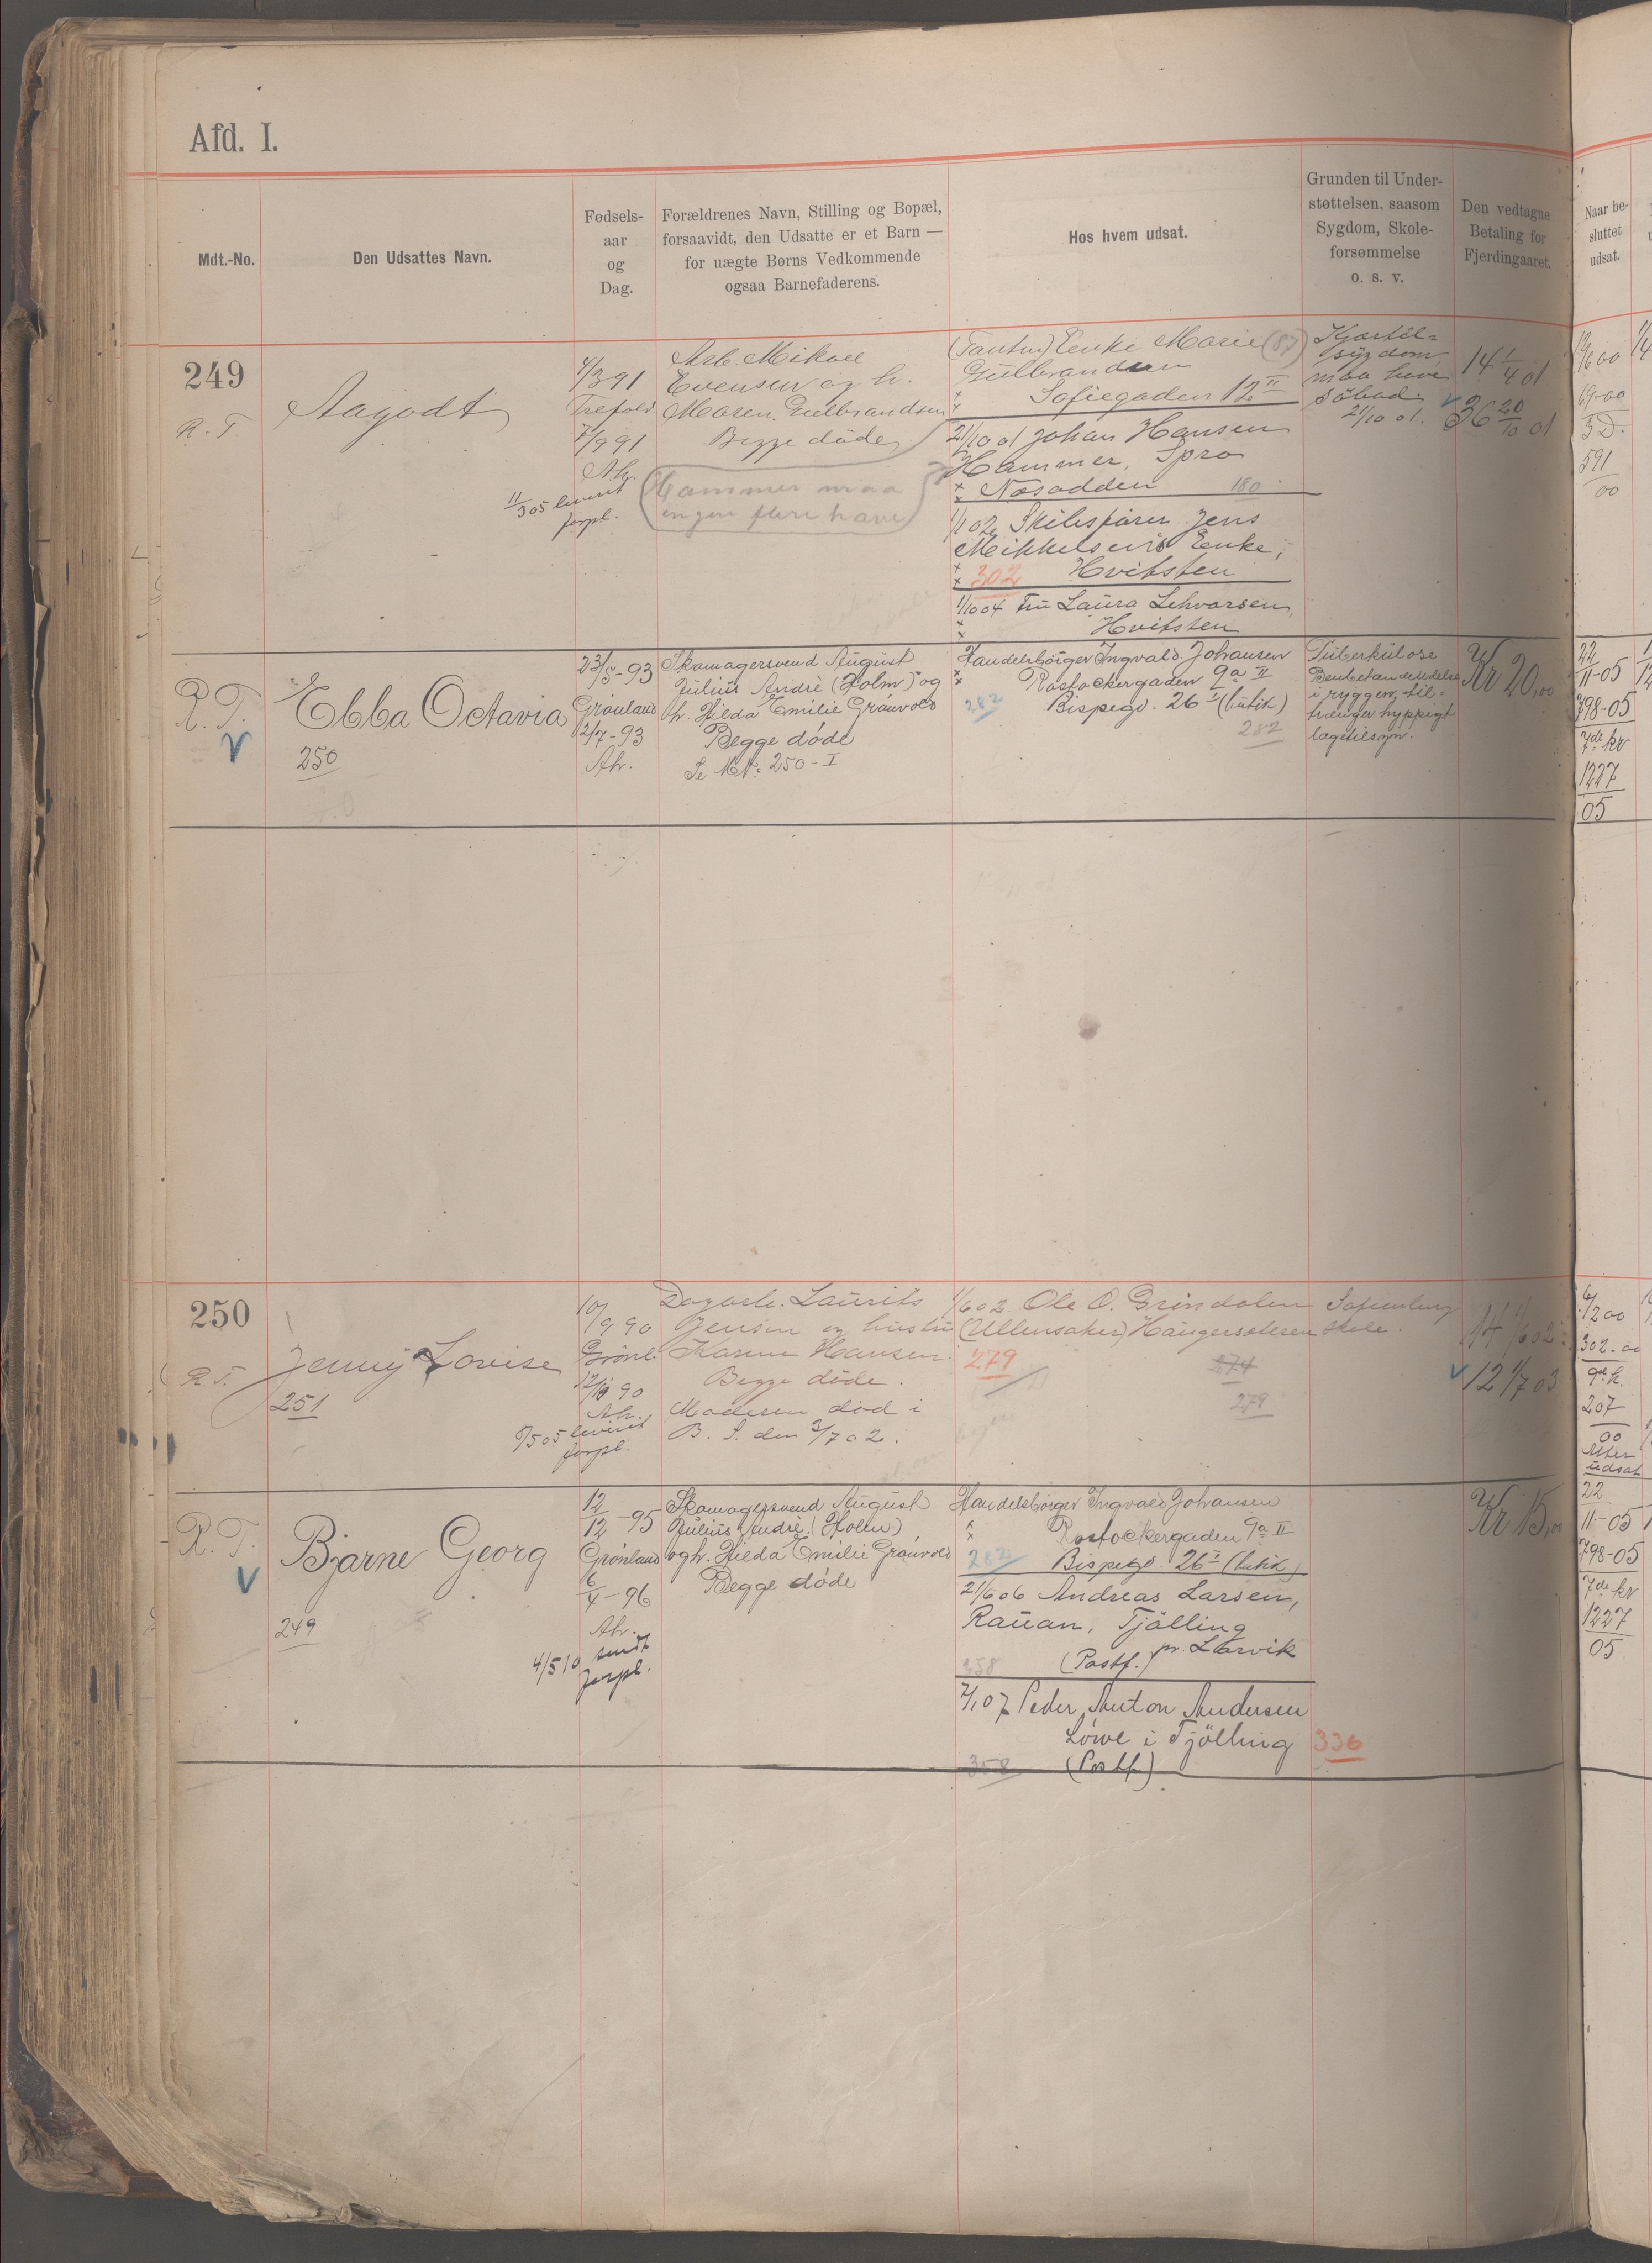 Afd. I.
Mdt.-No.
Den Udsattes Navn.
Fødsels-
aar
og
Dag.
Forældrenes Navn, Stilling og Bopæl,
forsaavidt, den Udsatte er et Barn —
for uægte Børns Vedkommende
ogsaa Barnefaderens.
Hos hvem udsat.
Grunden til Under-
støttelsen, saasom
Sygdom, Skole-
forsømmelse
o. s. v.
Den vedtagne
Betaling for
Fjerdingaaret.
Naar be-
sluttet
udsat.
249
R. T
Aagodt
4/3 91
Trefold
7/9 91
Ah.
11/3 05 leveret
forpl.
Arb. Mikael
Evensen og h.
Maren Gulbrandsen
Begge døde
Hammer maa
ingen flere have
(Tanten) Enke Marie (87)
Gulbrandsen
Sofiegaden 12 II
21/10 01 Johan Hansen
Hammer, Spro
Næsodden 180
1/10 02 Skibsfører Jens
Mikkelsen's Enke,
302 Hvitsten
1/10 04 Fru Laura Sehvarsen,
Hvitsten
Kjertel-
sygdom
maa have
søbad
21/10 01.
14 1/4 01
36 20/10 01
1/6 00
69-00
3 D.
591
00
R. T.
Ebba Octavia
250
23/5-93
Grønland
2/7-93
Ah.
Skomagersvend August
Julius Andrè (Holm) og
h. Hilda Emilie Grønvold
Begge døde
Se M.N. 250-I
Handelsbørger Ingvald Johansen
Rostockergaden 9a II
282 Bispegd. 26 I (butik)
282
Tuberkuløse
Benbetændelse
i ryggen, til-
trænger hyppigt
lægetilsyn.
Kr 20,00
22
11-05
798-05
7de kr
1227
05
250
R. T.
Jenny Lovise
251
10/9 90
Grønl.
12/10 90
Ah.
8/5 05 leveret
forpl.
Dagarb. Laurits
Jensen og hustru
Karen Hansen.
Begge døde.
Moderen død i
B. S. den 3/7 02.
1/6 02. Ole O. Grindalen
(Ullensaker) Haugersæteren
279
274
279
Sofienberg
skole.
14 1/6 02
12 1/7 03
6/2 00
302-00
9de k.
207
00
Atter
udsat
R. T.
Bjarne Georg
249
12
12-95
Grønland
6
4-96
Ah.
4/5 10 sendt
forpl.
Skomagersvend August
Julius Andrè (Holm)
og h. Hilda Emilie Grønvold
Begge døde
Handelsbørger Ingvald Johansen
Rostockergaden 9a II
282 Bispegd. 26 I (butik)
21/6 06 Andreas Larsen,
Rauan, Tjølling
pr. Larvik
358 (Postf.)
2/1 07 Peder Anton Andersen
Løwe i Tjølling 336
358 (Postf.)
Kr 15,00
22
11-05
798-05
7de kr
1227
05